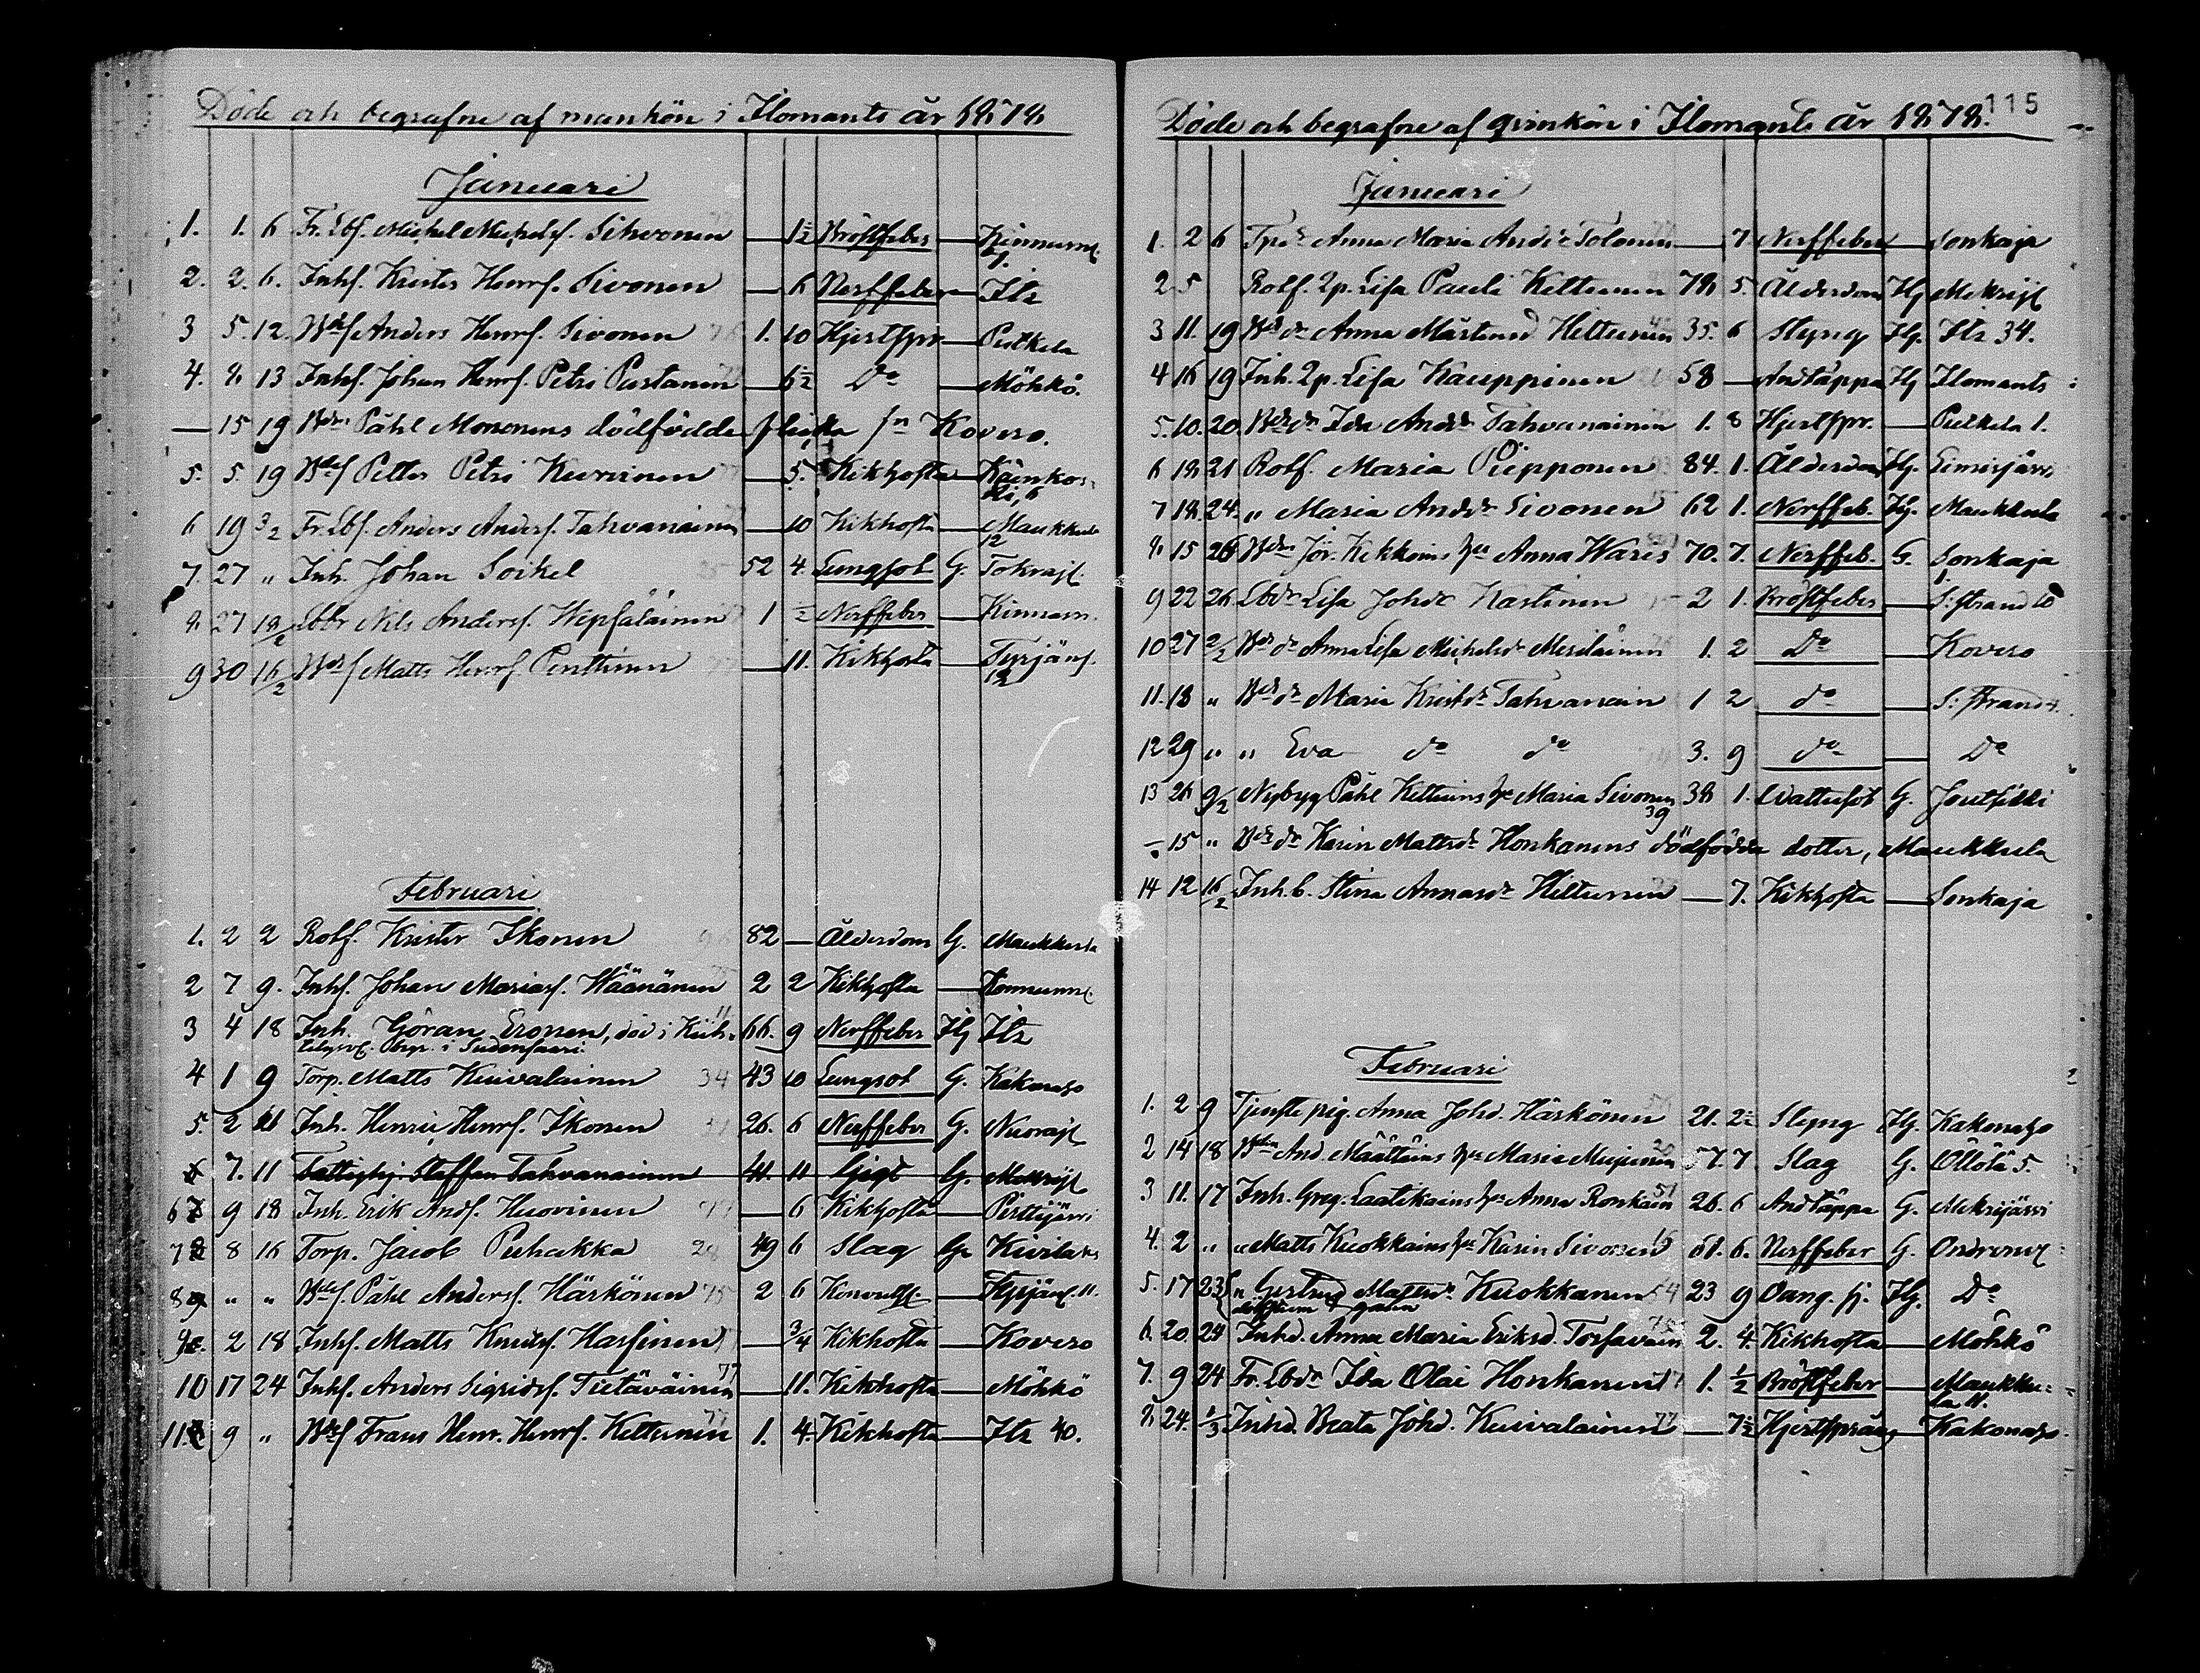 Döde och begrafne af mankön i Ilomants år 1878
Januari
1. 1. 6 Fr. Lbs. Michel Michelss. Sihvonen — 1½ Bröstfeber — Kinnunn. 7.
2. 2. 6. Inhs. Krister Henrs. Sivonen — 6 Nerffeber — Ilz
3 5. 12. Bds Anders Henrs. Sivonen 1. 10 Hjertspr — Putkela
4. 8 13 Inhs. Johan Henrs. Petri Pustanen — 6½ Do — Möhkö.
— 15 19 Bdn Påhl Mononens dödfödda flicka fn Kovero.
5. 5. 19 Bds Petter Petri Kurvinen — 5. Kikhosta — Käenkoski, 6
6 19 3/2 Fr. Lbs. Anders Anderss. Tahvanainen — 10 Kikhosta — Maukkula 12
7. 27 " Inh. Johan Soikel 52 4. Lungsot G. Tokrajl.
8. 27 18/2 Lbr Nils Anderss. Hepsäläinen 1 ½ Nerffeber — Kinnunn.
9 30 16/2 Bds Matts Henrs. Penttinen — 11. Kikhosta — Tyrjäns. 12
Februari
1. 2 2 Rotf. Krister Ikonen 82 — Ålderdom G. Maukkula
2 7 9. Inhs. Johan Mariæs. Wäänänen 2 2 Kikhosta — Konnunn.
3 4 18 Inh. Göran Eronen, död i Kiih- 66. 9 Nerffeber Hg Ilz
telysv. i Sudensaari.
4 1 9 Torp. Matts Kuivalainen 34 43 10 Lungsot G. Kakonaho
5. 2 11 Inh. Henric Henrs. Ikonen 26. 6 Nerffeber G. Nuorajl
6 7. 11 Fattighj. Staffan Tahvanainen 41. 11 Gigt G. Mekrijl
6 9 18 Inh. Erik Ands. Huovinen — 6 Kikhosta — Pirttijärvi
7 8 16 Torp. Jacob Puhakka 28 49 6 Slag G. Kivilax
8 " " Bds. Påhl Anderss. Härkönen 75 2 6 Konvuls. — Tyrjäns. 11.
9. 2 18 Inhs. Matts Knuts. Harsinen — 3/4 Kikhosta — Kovero
10 17 24 Inhs. Anders Sigridss. Tietäväinen 77 — 11. Kikhosta — Möhkö
11. 9 " Bds Frans Henr. Henrs. Kettunen 77 1. 4. Kikhosta — Ilz 40.
115
Döde och begrafne af qvinkön i Ilomants år 1878.
Januari
1. 2 6 Tpdr Anna Maria Andsdr Tolonen — 7 Nerffeber — Sonkaja
2 5 Rotf. Lp. Lisa Pauli Kettunen 78 5. Ålderdom Hg Mekrijl
3 11. 19 Bdsdr Anna Mårtensd Hiltunen 35. 6 Styng Hg. Ilz 34.
4 16 19 Inh. Lp. Lisa Kauppinen 58 — Andtäppa Hg Ilomants
5. 10. 20. Bdsdr Ida Andsdr Tahvanainen 1. 8 Hjertspr. — Putkela 1.
6 18 21 Rotf. Maria Piipponen 84. 1. Ålderdom Hg. Liusijärvi
7 18. 24. " Maria Andsdr Sivonen 62 1. Nerffeb. Hg. Maukkula
8. 15 26 Bdn Jör. Kekkoins hu Anna Waris 70. 7. Nerffeb. G. Sonkaja
9 22 26. Lbdr Lisa Johdr Kastinen 2 1. Bröstfeber — S: strand 10
10 27 2/2 Bdsdr Anna Lisa Michelsdr Meriläinen 1. 2 Do — Kovero
11. 18 " Bdsdr Maria Kristdr Tahvanain 1 2 do — S: strand 4.
12 29 " " Eva do do 3. 9 do — Do
13 26 9/2 Nybyg Påhl Kettuins hu Maria Sivonen 39 38 1. Wattusot G. Joutsilki
— 15 " Bdsdr Karin Mattsdr Honkanens dödfödda dotter, Maukkula
14 12 16/2 Inh. b. Stina Annasdr Hiltunen — 7. Kikhosta — Sonkaja
Februari
1. 2 9 Tjenste pig. Anna Johd. Härkönen 21. 2½ Styng Hg. Kakonaho
2 14 18 Bdn And. Määttäins hu Maria Mujunen 57. 7. Slag G. Öllölä 5.
3 11. 17 Inh. Greg. Laatikains hu Anna Ronkain 51 26. 6 Andtäppa G. Mekrijärvi
4. 2 " " Matts Kuokkains hu Karin Sivonen 61. 6. Nerffeber G. Ondronv.
5. 17 23 " Gertrud Mattsdr Kuokkanen 54 23 9 Oang. sj. Hg. Do
6. 20. 24 Inhd. Anna Maria Eriksd. Torsavain 75 2. 4. Kikhosta — Möhkö
7. 9 24 Fr. Lbdr Ida Olai Honkanen 1. ½ Bröstfeber — Maukku-
la 11.
8. 24. 1/3 Inhd. Beata Johd. Kuivalainen 77 — 7½ Hjertspräng — Kakonaho.